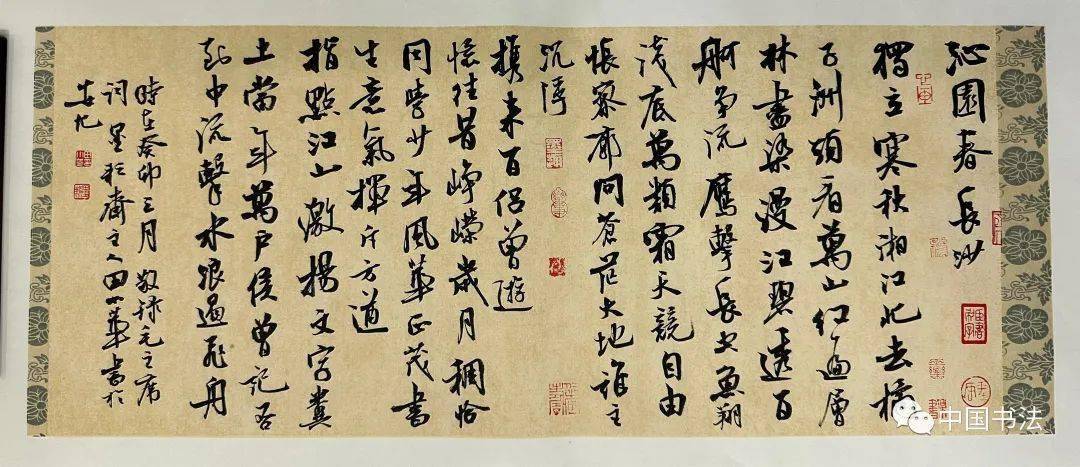 沁園春 長沙
獨立寒秋湘江北去橘
子洲頭看萬山红遍層
林盡染漫江碧透百
舸争流鷹擊長空魚翔
浅底萬類霜天競自由
悵寥廓問蒼茫大地誰主
沉浮
携来百侣曾遊
憶往昔崢嶸歲月稠恰
同學少年風華正茂書
生意氣揮斥方遒
指點江山激揚文字糞
土當年萬户侯曾記否
到中流擊水浪遏飛舟
時在癸卯三月敬録毛主席
詞 墨齋主人田華書於
中国书法